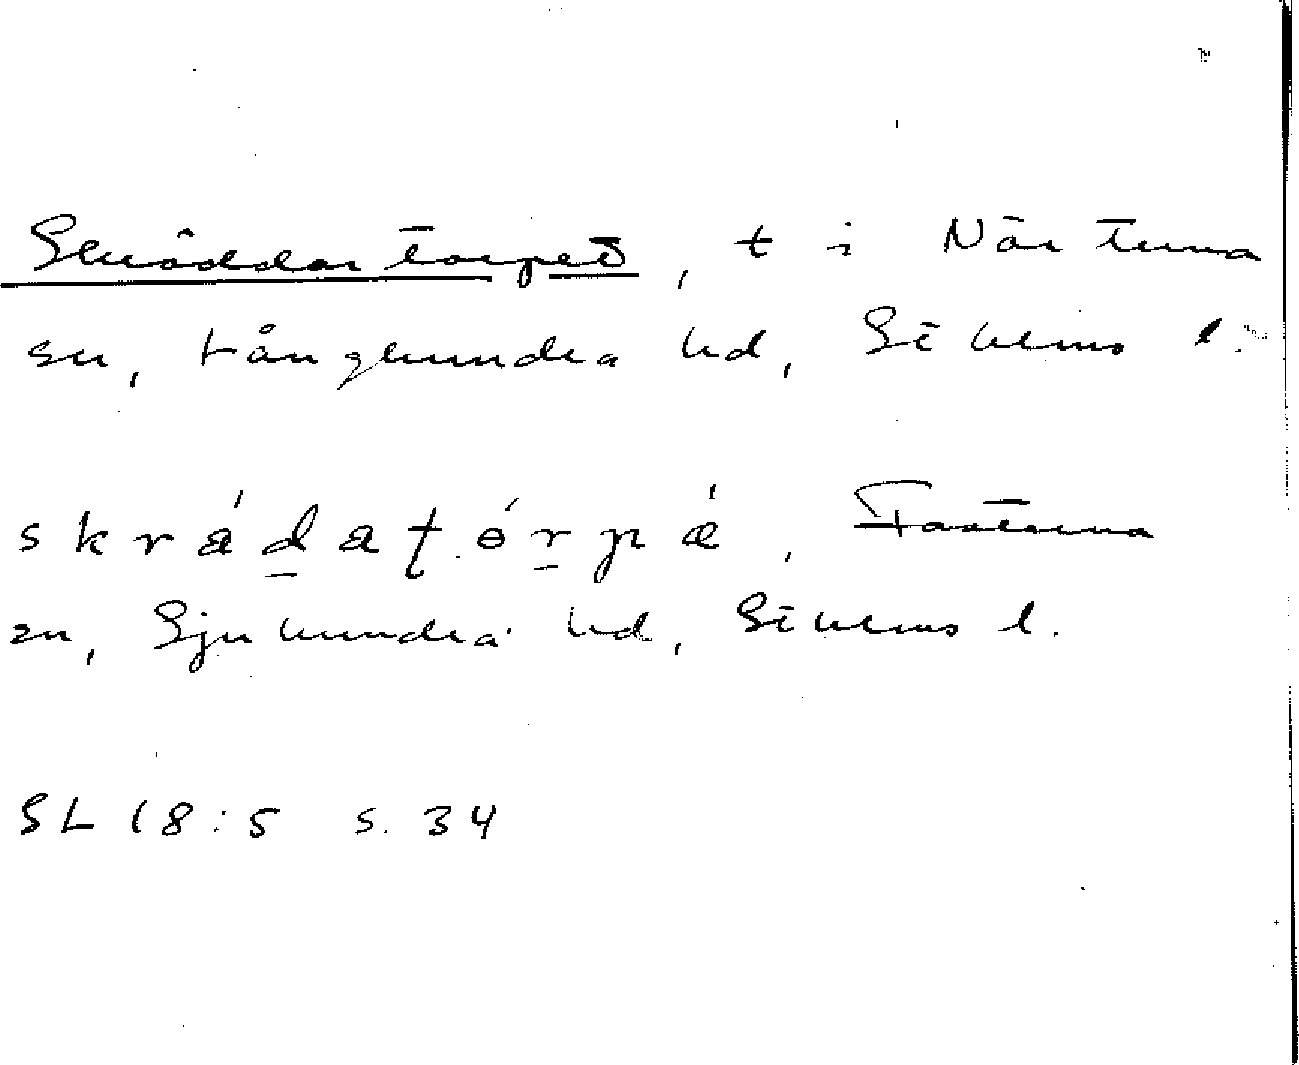 Skräddartorpet, t i Närtuna
sn, Långhundra hd, Sthlms l.
skrǽdat̨órpǽ, Fasterna
sn, Sjuhundra hd, Sthlms l.
SL 18:5 s. 34